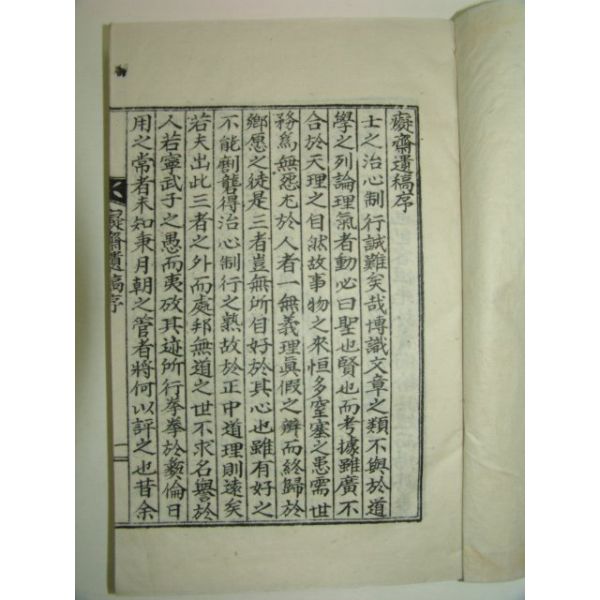 癡齋遺稿序
士之治心制行誠難矣哉博識文章之類不與於道
學之列論理氣者動必曰聖也賢也而考據雖廣不
合於天理之自然故事物之來恒多窒塞之患需世
務爲無怨尤於人者一無義理眞假之辨而終歸於
鄕愿之徒是三者豈無所自好於其心也雖有好之
不能剷聾得治心制行之熟故於正中道理則遠矣
若夫出此三者之外而處邦無道之世不求名譽於
人若寧武子之愚而夷攷其迹所行拳拳於彜倫日
用之常者未知秉月朝之管者將何以評之也昔余
癡齋遺稿序